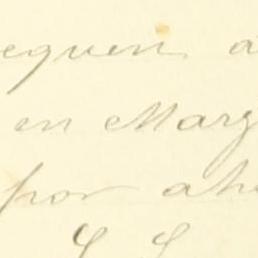 equen a
en Marz
por ah